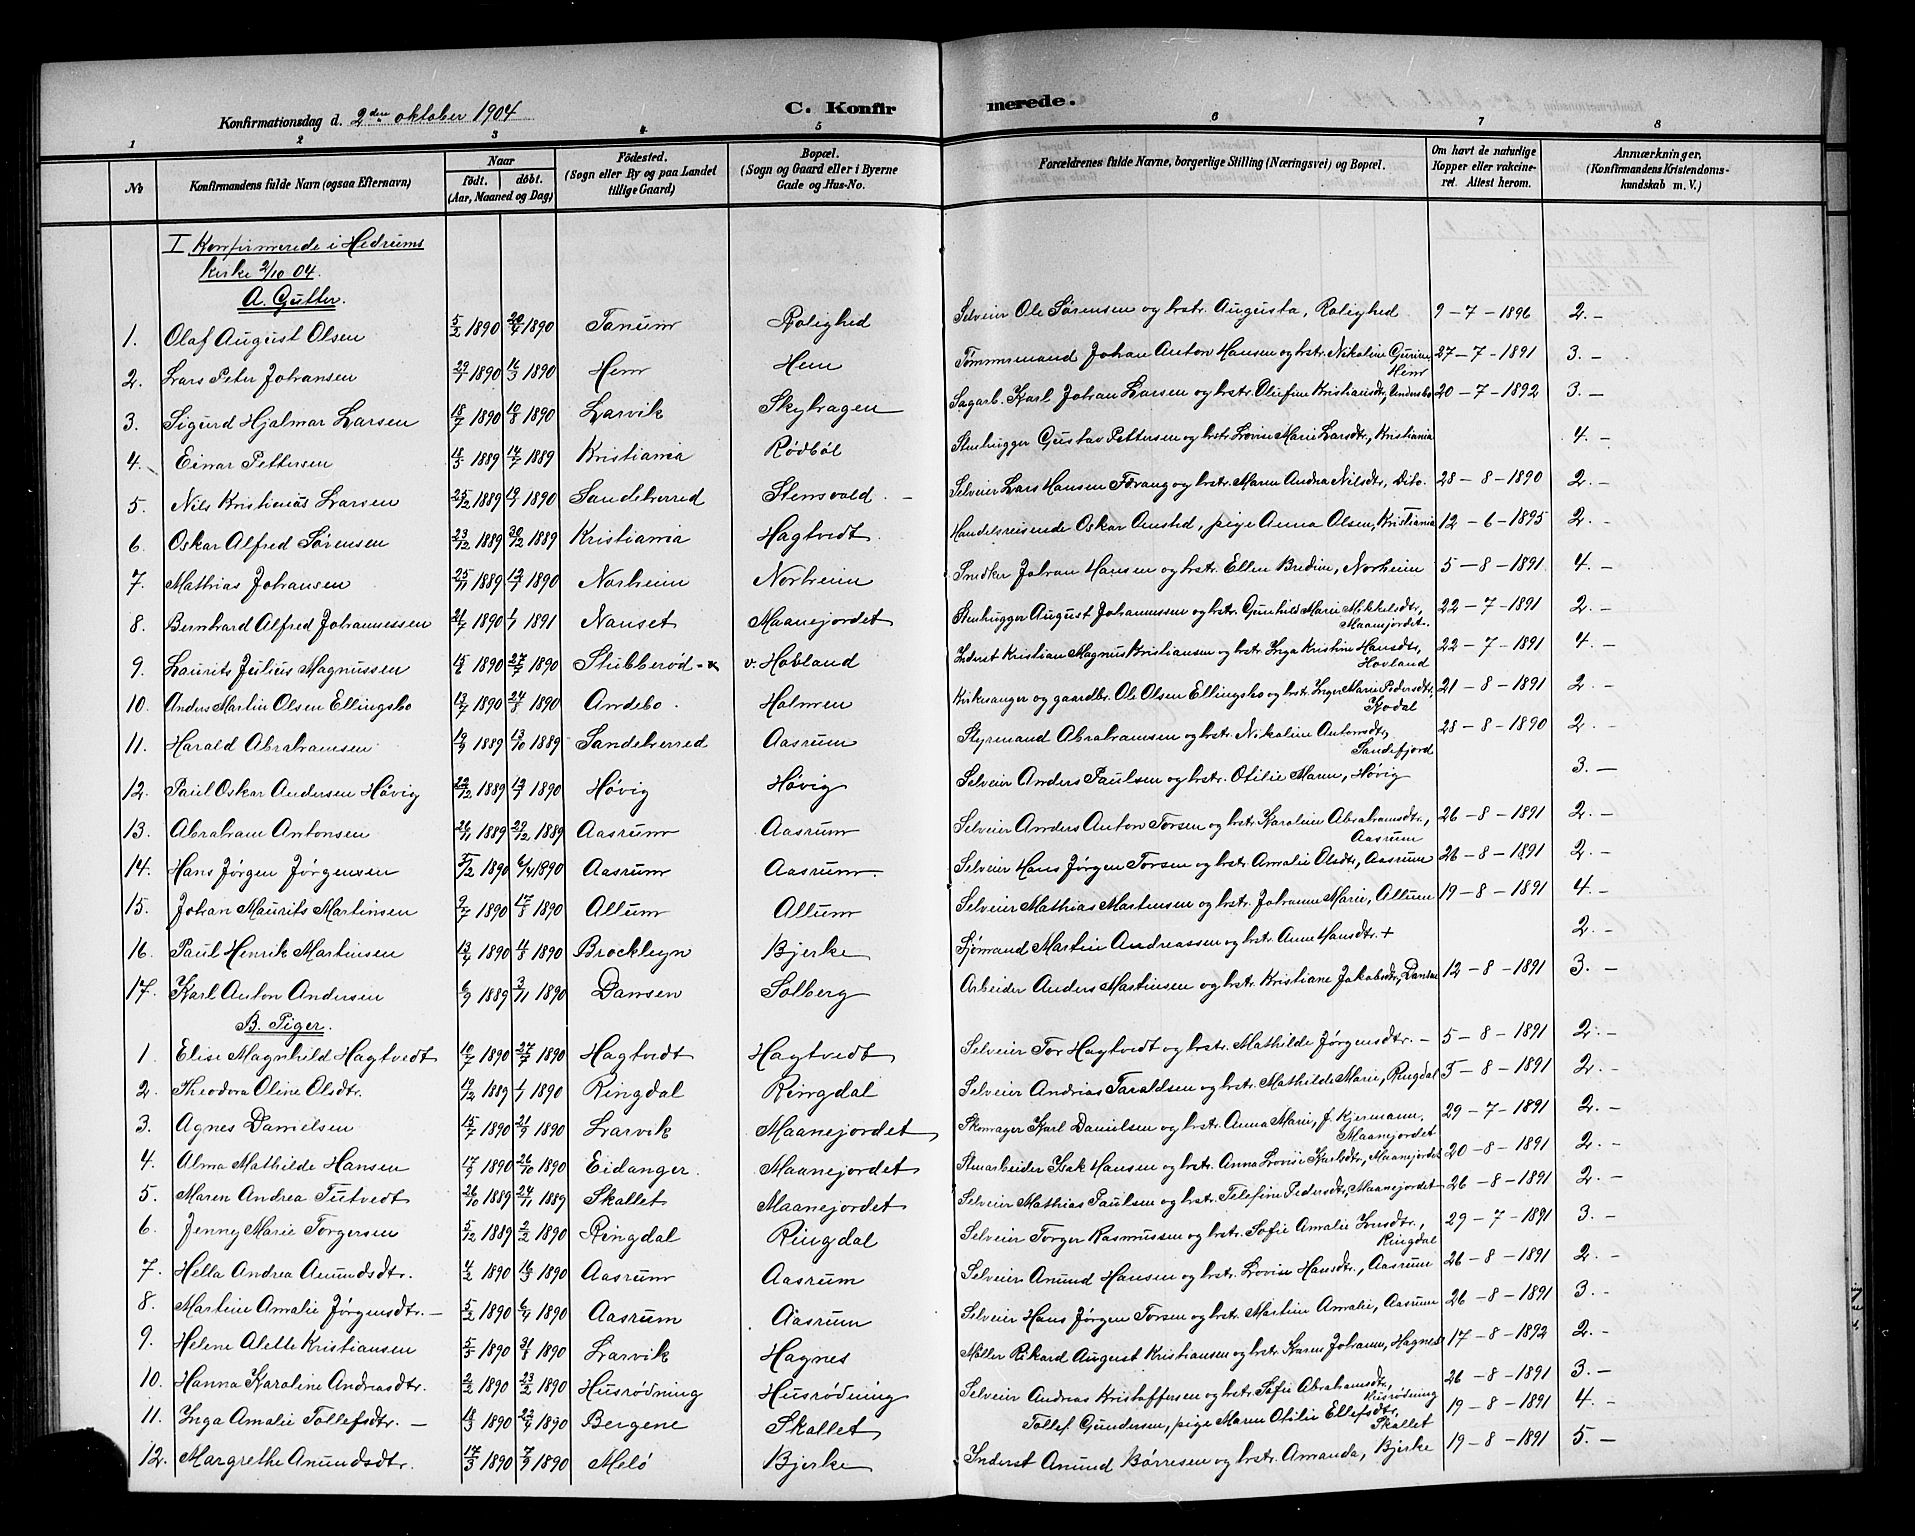 Konfirmationsdag d. 2den oktober 1904
C. Konfir merede.
1 2 3 4 5 6 7 8
No
Konfirmandens fulde Navn (ogsaa Efternavn)
Naar
født. døbt.
(Aar, Maaned og Dag)
Fødested.
(Sogn eller By og paa Landet
tillige Gaard)
Bopæl.
(Sogn og Gaard eller i Byerne
Gade og Hus-No.
Forældrenes fulde Navne, borgerlige Stilling (Næringsvei) og Bopæl.
Om havt de naturlige
Kopper eller vakcine-
ret. Attest herom.
Anmærkninger.
(Konfirmandens Kristendoms-
kundskab m. V.)
I Konfirmerede i Hedrums
kirke 2/10 04.
A. Gutter.
1. Olaf August Olsen 5/2 1890 20/4 1890 Tanum Rolighed Selveier Ole Sørensen og hstr. Augusta, Rolighed 9-7-1896 2.-
2. Lars Peter Johansen 29/1 1890 16/3 1890 Hem Hem Tømmermand Johan Anton Hansen og hstr. Nikoline Gurine, Hem 27-7-1891 3.-
3. Sigurd Hjalmar Larsen 18/7 1890 10/8 1890 Larvik Skyhagen Sagarb. Karl Johan Larsen og hstr. Olufine Kristiansdtr, 20-7-1892 3.-
4. Einar Pettersen 18/5 1889 14/7 1889 Kristiania Rødbøl Stenhugger Gustav Pettersen og hstr. Lovise Marie Larsdtr., Kristiania 4.-
5. Nils Kristian Larsen 25/12 1889 1890 Sandeherred Stensvald Selveier Lars Hansen Førang og hstr. Maren Andrea Nilsdtr, Dito. 28-8-1890 2.-
6. Oskar Alfred Sørensen 23/12 1889 30/12 1889 Kristiania Hagtvedt Handelsreisende Oskar Onsted, pige Anna Olsen, Kristiania 12-6-1895 2.-
7. Mathias Johansen 25/11 1889 1890 Norheim Norheim Snedker Johan Hansen og hstr. Ellen Bredine, Norheim 5-8-1891 4.-
8. Bernhard Alfred Johannessen 1890 1891 Nanset Maanejordet Stenhugger August Johannessen og hstr. Gunhild Marie Mikkelsdtr, Maanejordet. 22-7-1891 2.-
9. Laurits Julius Magnussen 1890 1890 Stubberød v. Hovland Inderst Kristian Magnus Kristiansen og hstr. Inga Kristine Hansdtr, Hovland 22-7-1891 4.-
10. Anders Martin Olsen Ellingsbo 13/7 1890 24/8 1890 Andebo. Holmen Kirkesanger og gaardbr. Ole Olsen Ellingsbo og hstr. Inger Marie Pedersdtr, Kodal 21-8-1891 2.-
11. Harald Abrahamsen 1889 13/10 1889 Sandeherred Aasrum Styrmand Abrahamsen og hstr. Nikoline Antonsdtr, Sandefjord 28-8-1890 2.-
12. Paul Oskar Andersen Høvig 1889 1890 Høvig Høvig Selveier Anders Paulsen og hstr. Otilie Maren, Høvig 3.-
13. Abraham Antonsen 26/11 1889 29/12 1889 Aasrum Aasrum Selveier Anders Anton Torsen og hstr. Karoline Abrahamsdtr., Aasrum 26-8-1891 2.-
14. Hans Jørgen Jørgensen 5/2 1890 6/4 1890 Aasrum Aasrum. Selveier Hans Jørgen Torsen og hstr. Amalie Olsdtr., Aasrum 26-8-1891 2.-
15. Johan Maurits Martinsen 9/7 1890 17/8 1890 Allum Allum Selveier Mathias Martinsen og hstr. Johanne Marie, Allum 19-8-1891 4.-
16. Paul Henrik Martinsen 13/4 1890 4/8 1890 Brockleyn Bjerke Sjømand Martin Andreassen og hstr. Anne Hansdtr. + 2.-
17. Karl Anton Andersen 6/9 1889 3/11 1890 Dansen Solberg Arbeider Anders Martinsen og hstr. Kristiane Jakobsdtr, Dansen 12-8-1891 3.-
B. Piger.
1. Elise Magnhild Hagtvedt 10/7 1890 27/7 1890 Hagtvedt Hagtvedt Selveier Tor Hagtvedt og hstr. Mathilde Jørgensdtr. - 5-8-1891 2.-
2. Theodora Oline Olsdtr. 19/12 1889 1/1 1890 Ringdal Ringdal Selveier Andrias Taraldsen og hstr. Mathilde Marie, Ringdal 5-8-1891 2.-
3. Agnes Danielsen 15/7 1890 21/9 1890 Larvik Maanejordet Skomager Karl Danielsen og hstr. Anna Marie, f. Kjermann, Maanejordet 29-7-1891 2.-
4. Alma Mathilde Hansen 17/8 1890 26/10 1890 Eidanger. Maanejordet Stenarbeider Isak Hansen og hstr. Anna Lovise Karlsdtr, Maanejordet 20-8-1891 2.-
5. Maren Andrea Tutvedt 26/10 1889 24/11 1889 Skallet Maanejordet Selveier Mathias Paulsen og hstr. Telefine Pedersdtr, Maanejordet 26-8-1891 2.-
6. Jenny Marie Torgersen 5/12 1889 2/2 1890 Ringdal Ringdal Selveier Torger Rasmussen og hstr. Sofie Amalie, Ringdal 29-7-1891 3.-
7. Hella Andrea Anundsdtr. 4/2 1890 16/3 1890 Aasrum Aasrum Selveier Anund Hansen og hstr. Lovise Hansdtr., Aasrum 26-8-1891 2.-
8. Martine Amalie Jørgensdtr. - 5/2 1890 6/4 1890 Aasrum Aasrum Selveier Hans Jørgen Torsen og hstr. Martine Amalie, Aasrum 26-8-1891 3.-
9. Helene Alette Kristiansen 5/5 1890 31/8 1890 Larvik Hagnes Møller Rikard August Kristiansen og hstr. Karen Johanne, Hagnes 17-8-1892 2.-
10. Hanna Karoline Andreasdtr. 2/2 1890 23/2 1890 Husrødning Husrødning Selveier Andreas Kristoffersen og hstr. Sofie Abrahamsdtr, Husrødning 26-8-1891 3.-
11. Inga Amalie Tollefsdtr. - 18/3 1890 1890 Bergene Skallet Tollef Gundersen, pige Maren Otilie Ellefsdtr, Skallet 19-8-1891 4.-
12. Margrethe Anundsdtr. 17/5 1890 7/9 1890 Melø Bjerke Inderst Anund Børresen og hstr. Amanda, Bjerke 19-8-1891 5.-